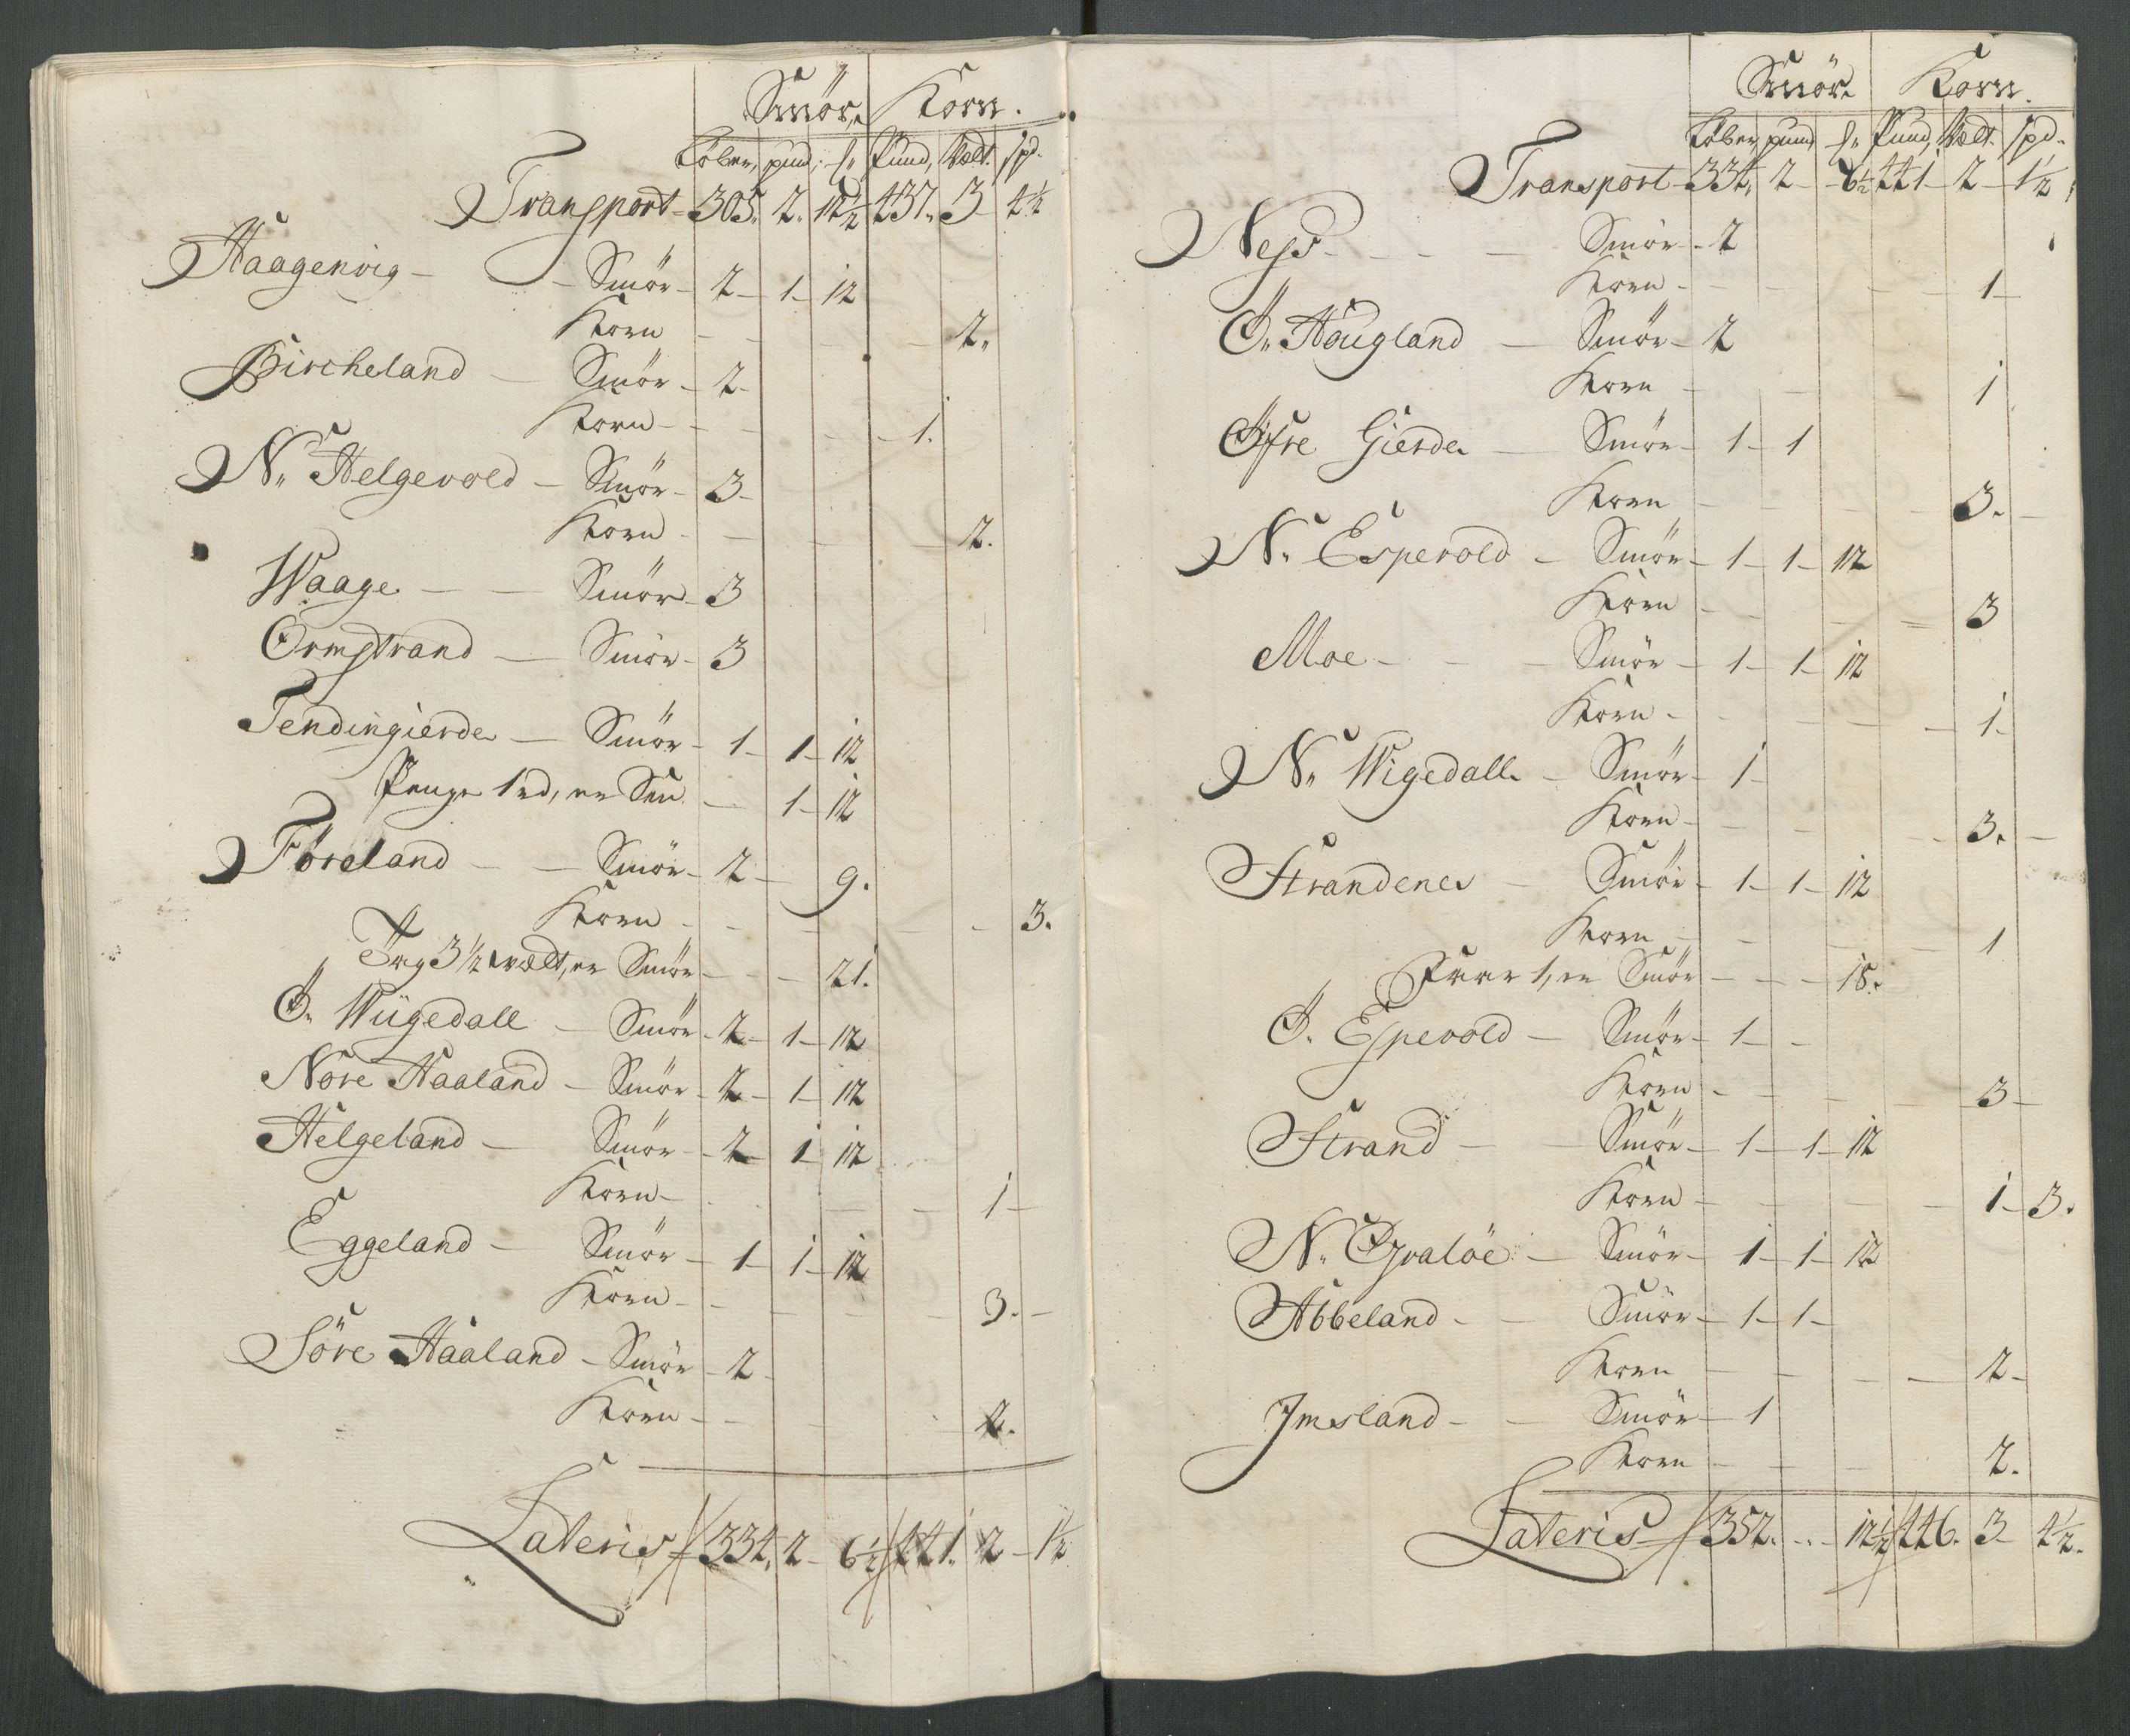 Smör, Korn.
Löber, pund, ʃ. Pund, Vælt. spd.
Transport 305. 2. 12½ 437. 3 4½
Haagenvig - Smör - 2 - 1 - 12
Korn - 2.
Bircheland - Smör - 2 -
Korn - 1.
N. Helgevold - Smör - 3 -
Korn - 2.
Waage - Smör - 3
Ormstrand - Smör - 3
Tendingierde - Smör - 1 - 1 - 12
Penge 1 rd, er Smr - 1 - 12
Föreland - Smör - 2 - 9.
Korn - 3.
3½ vælt, er Smör - 21.
I. Wiigedall - Smör - 2 - 1 - 12
Nore Haaland - Smör - 2 - 1 - 12
Helgeland - Smör - 2 - 1 - 12
Korn - 1 -
Eggeland - Smör - 1 - 1 - 12
Korn - 3. -
Söre Haaland - Smör - 2 -
Korn - 2.
Lateris 334. 2 - 6½ 441. 2 - 1½
Smör Korn.
Löber, pund ʃ. Pund, Vælt. spd.
Transport 334. 2 - 6½ 441 - 2 - 1½
Ness - Smör - 2
Korn - 1 -
I. Hougland - Smör - 2
Korn - 1
Öfre Gierde - Smör - 1 - 1
Korn - 3. -
N. Espevold - Smör - 1 - 1 - 12
Korn - 3
Moe - Smör - 1 - 1 - 12
Korn - 1.
N. Wigedall - Smör - 1 -
Korn - 3. -
Strandene - Smör - 1 - 1 - 12
Korn - 1
1, er Smör - 18.
I. Espevold - Smör - 1 -
Korn - 3 -
Strand - Smör - 1 - 1 - 12
Korn - 1 - 3.
N. Qvalöe - Smör - 1 - 1 - 12
Abbeland - Smör - 1 - 1 -
Korn - 2 -
Imsland - Smör - 1
Korn - 2.
Lateris 352. - 12½ 446. 3 4½.